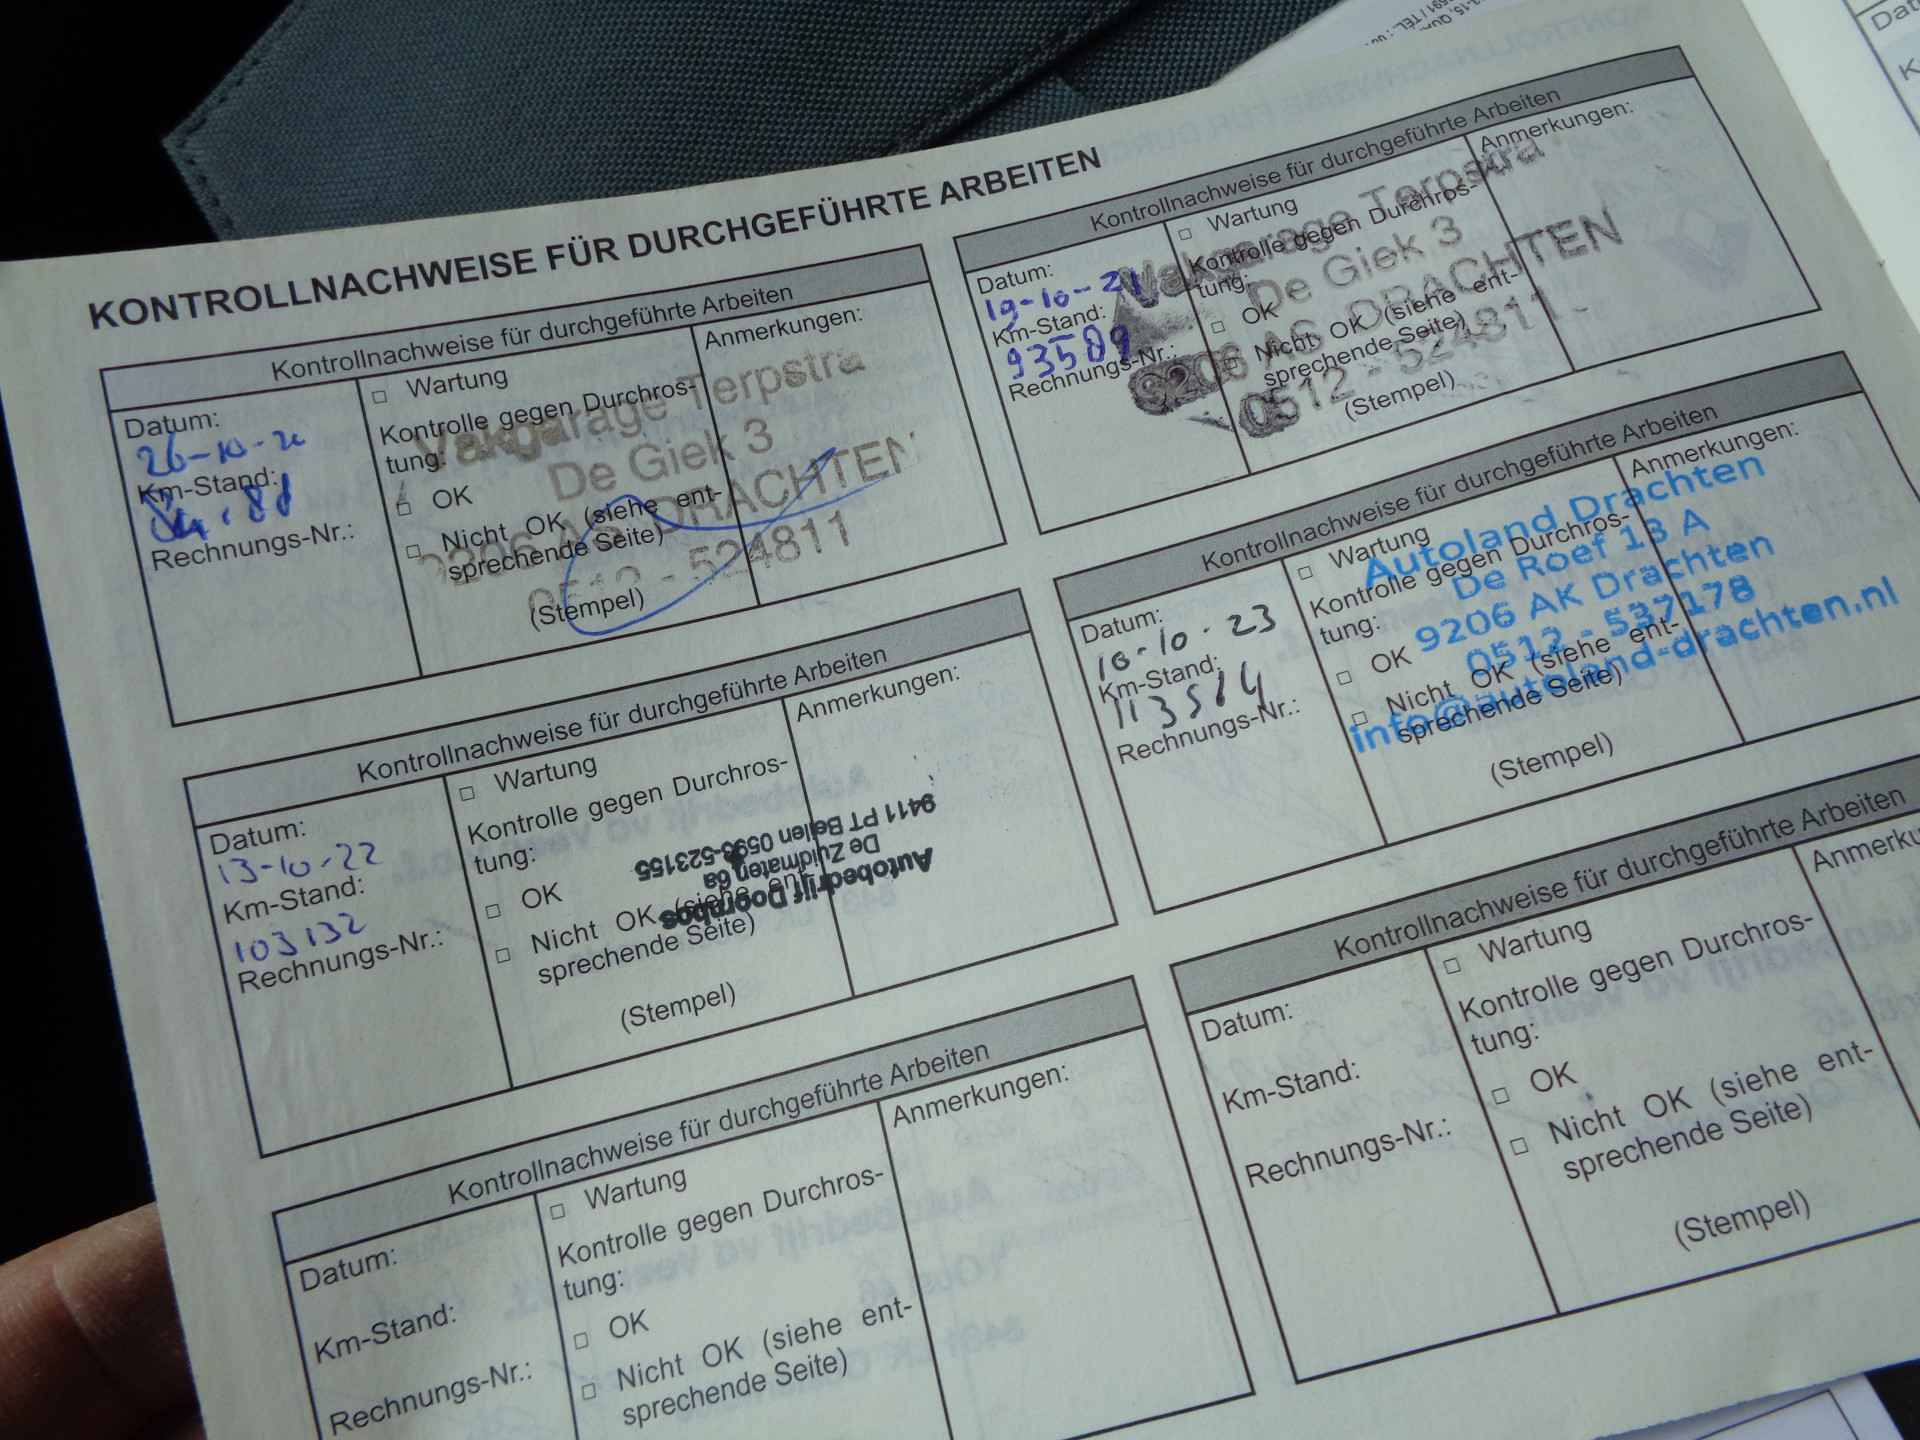 KONTROLLNACHWEISE FÜR DURCHGEFÜHRTE ARBEITEN
Kontrollnachweise für durchgeführte Arbeiten
Datum:
26-10-20
Km-Stand:
Rechnungs-Nr.:
□ Wartung
Kontrolle gegen Durchros-
tung:
□ OK
□ Nicht OK (siehe ent-
sprechende Seite)
(Stempel)
Anmerkungen:
Vakgarage Terpstra
De Giek 3
9206 AG DRACHTEN
0512 - 524811
Kontrollnachweise für durchgeführte Arbeiten
Datum:
19-10-21
Km-Stand:
93589
Rechnungs-Nr.:
□ Wartung
Kontrolle gegen Durchros-
tung:
□ OK
□ Nicht OK (siehe ent-
sprechende Seite)
(Stempel)
Anmerkungen:
Vakgarage Terpstra
De Giek 3
9206 AG DRACHTEN
0512 - 524811
Kontrollnachweise für durchgeführte Arbeiten
Datum:
13-10-22
Km-Stand:
103132
Rechnungs-Nr.:
□ Wartung
Kontrolle gegen Durchros-
tung:
□ OK
□ Nicht OK (siehe ent-
sprechende Seite)
(Stempel)
Anmerkungen:
Autobedrijf Doornbos
De Zuidmaten 6a
9411 PT Beilen 0593-523155
Kontrollnachweise für durchgeführte Arbeiten
Datum:
10-10-23
Km-Stand:
113514
Rechnungs-Nr.:
□ Wartung
Kontrolle gegen Durchros-
tung:
□ OK
□ Nicht OK (siehe ent-
sprechende Seite)
(Stempel)
Anmerkungen:
Autoland Drachten
De Roef 13 A
9206 AK Drachten
0512 - 537178
info@autoland-drachten.nl
Kontrollnachweise für durchgeführte Arbeiten
Datum:
Km-Stand:
Rechnungs-Nr.:
□ Wartung
Kontrolle gegen Durchros-
tung:
□ OK
□ Nicht OK (siehe ent-
sprechende Seite)
Anmerkungen:
Kontrollnachweise für durchgeführte Arbeiten
Datum:
Km-Stand:
Rechnungs-Nr.:
□ Wartung
Kontrolle gegen Durchros-
tung:
□ OK
□ Nicht OK (siehe ent-
sprechende Seite)
(Stempel)
Anmerku